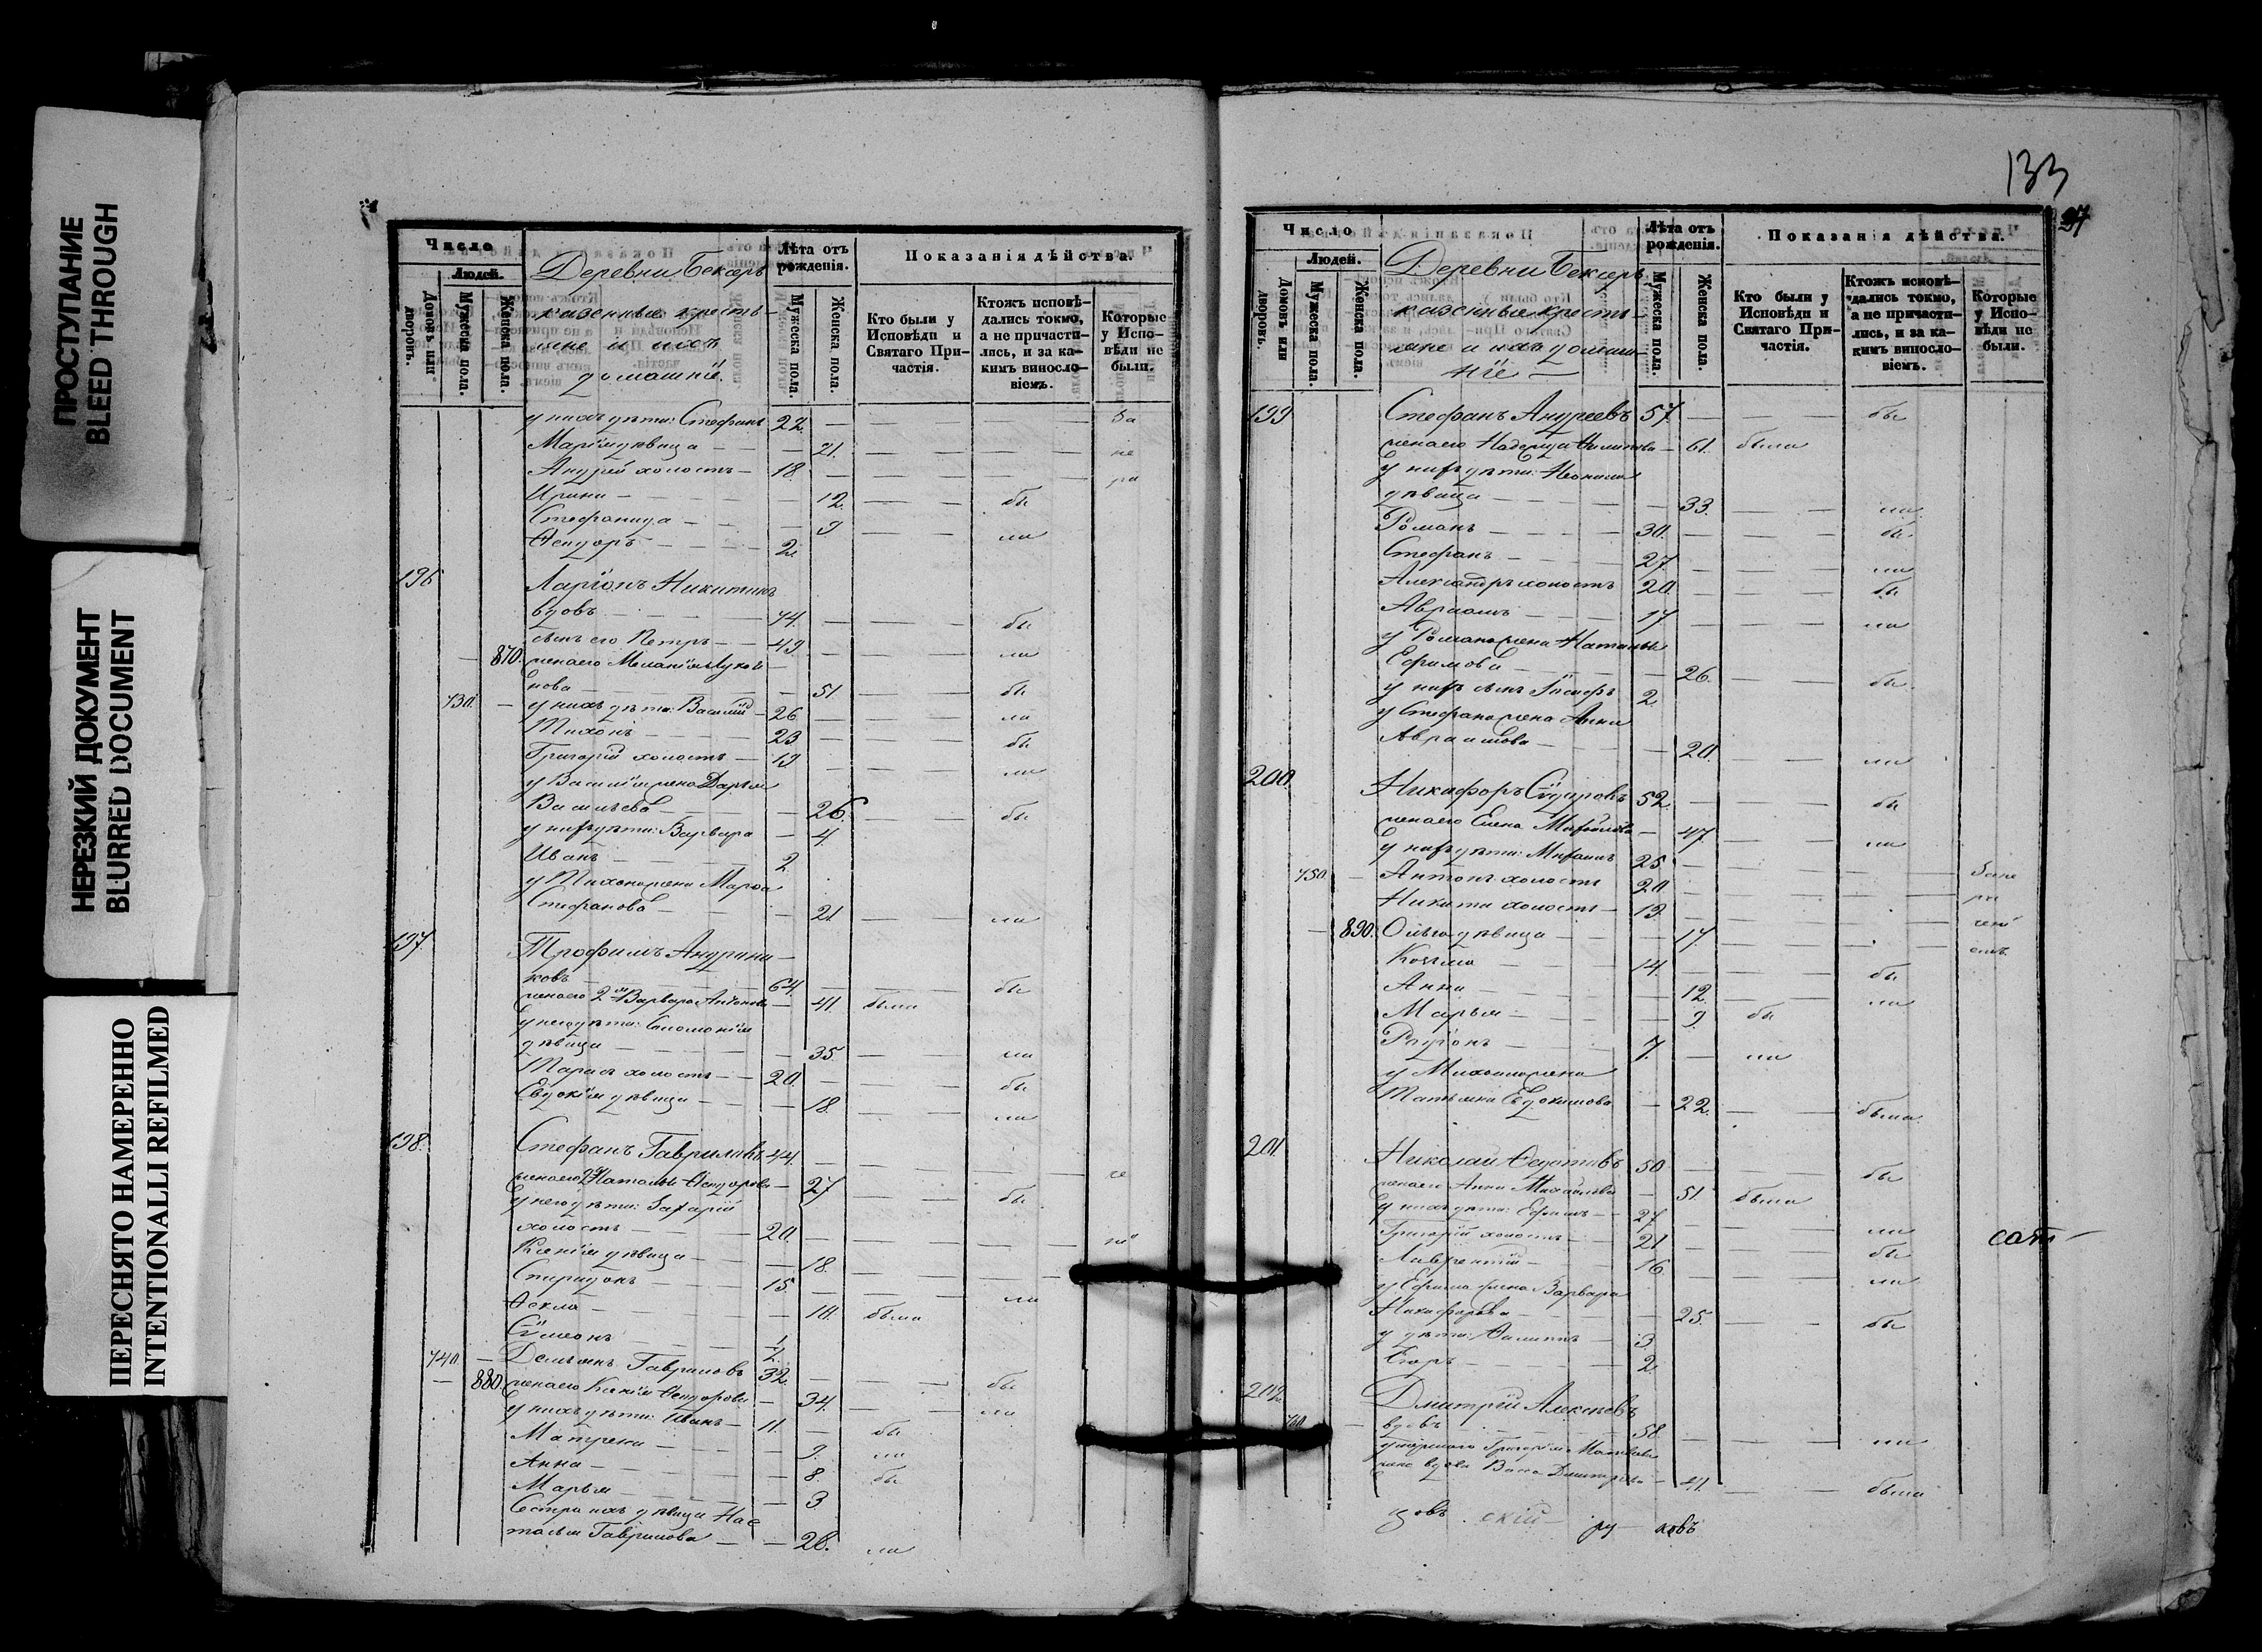 ПРОСТУПАНИЕ
BLEED THROUGH
НЕРЕЗКИЙ ДОКУМЕНТ
BLURRED DOCUMENT
ПЕРЕСНЯТО НАМЕРЕННО
INTENTIONALLI REFILMED
Число
Людей.
Домовъ или дворовъ.
Мужеска пола.
Женска пола.
Деревни Бексеръ
казенные кресть-
яне и ихъ
домашніе.
Лѣта отъ рожденія.
Мужеска пола.
Женска пола.
Показанія дѣйства.
Кто были у Исповѣди и Святаго При-частія.
Ктожъ исповѣ-дались токмо, а не причасти-лись, и за ка-кимъ винослo-віемъ.
Которые у Испо-вѣди не были.
у нихъ дѣти: Стефанъ 22. — — — За
Марія дѣвица — 21. — — — не
Андрей холостъ — 18. — — — ра
Ирина — 12. — — бы
Стефанида — 9 — — ли
Ѳеодоръ — 2.
196 Ларіонъ Никитинъ
вдовъ — 74. — — бы
сынъ его Петръ — 49 — — ли
870. жена его Меланія
нова — 51. — — бы
730. — у нихъ дѣти: Василій — 26 — — ли
Тихонъ — 23 — — бы
Григорій холостъ — 19 — — ли
у Василія жена Дарья
Васильева — 26. — — бы
у нихъ дѣти: Варвара — 4.
Иванъ — 2
у Тихона жена Марѳа
Стефанова — 21 — — ли
197. Трофимъ Андріяно-
ковъ — 64. — — бы
жена его 2я Варвара Антонова — 41. была
у него дѣти: Соломонія
дѣвица — 35 — — ли
Тарасъ холостъ — 20. — — бы
Евдокія дѣвица — 18. — — ли
198. Стефанъ Гавриловъ 44. — —
жена его 2я Наталья Ѳеодорова — 27 — — бы
у него дѣти: Захарій
холостъ — 20. — —
Ксенія дѣвица — 18. — —
Спиридонъ — 15. — — ли
Ѳекла — 10. была
Сѵмеонъ — 1/2
740. — Демьянъ Гавриловъ 32. — — бы
— 880. жена его Ксенія Ѳеодорова — 34. — — ли
у нихъ дѣти: Иванъ — 11. — бы
Матрена — 9. ли
Анна — 8. бы
Марья — 3
Сестра ихъ дѣвица На-
талья Гаврилова — 28. ли
133
37
Число
Людей.
Домовъ или дворовъ.
Мужеска пола.
Женска пола.
Деревни Бексеръ
казенные кресть-
яне и ихъ домаш-
ніе —
Лѣта отъ рожденія.
Мужеска пола.
Женска пола.
Показанія дѣйства.
Кто были у Исповѣди и Святаго При-частія.
Ктожъ исповѣ-дались токмо, а не причасти-лись, и за ка-кимъ винослo-віемъ.
Которые у Испо-вѣди не были.
199 Стефанъ Андреевъ 57. — — бы
жена его Надежда Филипова — 61. была
у нихъ дѣти: Неонила
дѣвица — 33. — — ли
Романъ — 30. — — бы
Стефанъ — 27. — — ли
Александръ холостъ 20. — — бы
Авраамъ — 17 — — ли
у Романа жена Наталья
Ефимова — 26. — — бы
у нихъ сынъ Іосифъ 2.
у Стефана жена Анна
Авраамова — 20. — — ли
200. Никифоръ Сидоровъ 52. — — бы
жена его Елена Михайлова — 47. — — ли
у нихъ дѣти: Михаилъ 25 — — —
750. — Антонъ холостъ 20. — — —
Никита холостъ — 19. — — —
— 890. Ольга дѣвица — 17. — — —
Козьма — 14. — — бы
Анна — 12. — — ли
Марья — 9. бы
Родіонъ — 7. — ли
у Михаила жена
Татьяна Евдокимова — 22. — — была
201. Николай Ѳедотовъ 50 — — бы
жена его Анна Михайлова — 51. была
у нихъ дѣти: Ефимъ — 27 — — ли
Григорій холостъ — 21 — — бы
Лаврентій — 16. — — ли
у Ефима жена Варвара
Никифорова — 25. — — бы
у дѣти: Филиппъ — 3.
Егоръ — 2.
202. Дмитрій Алексѣевъ
760. — вдовъ — 58. — — ли
умершаго Григорія Матвѣева
жена вдова Васса Дмитріева — 41. — — была
цовъ скій ру ковъ